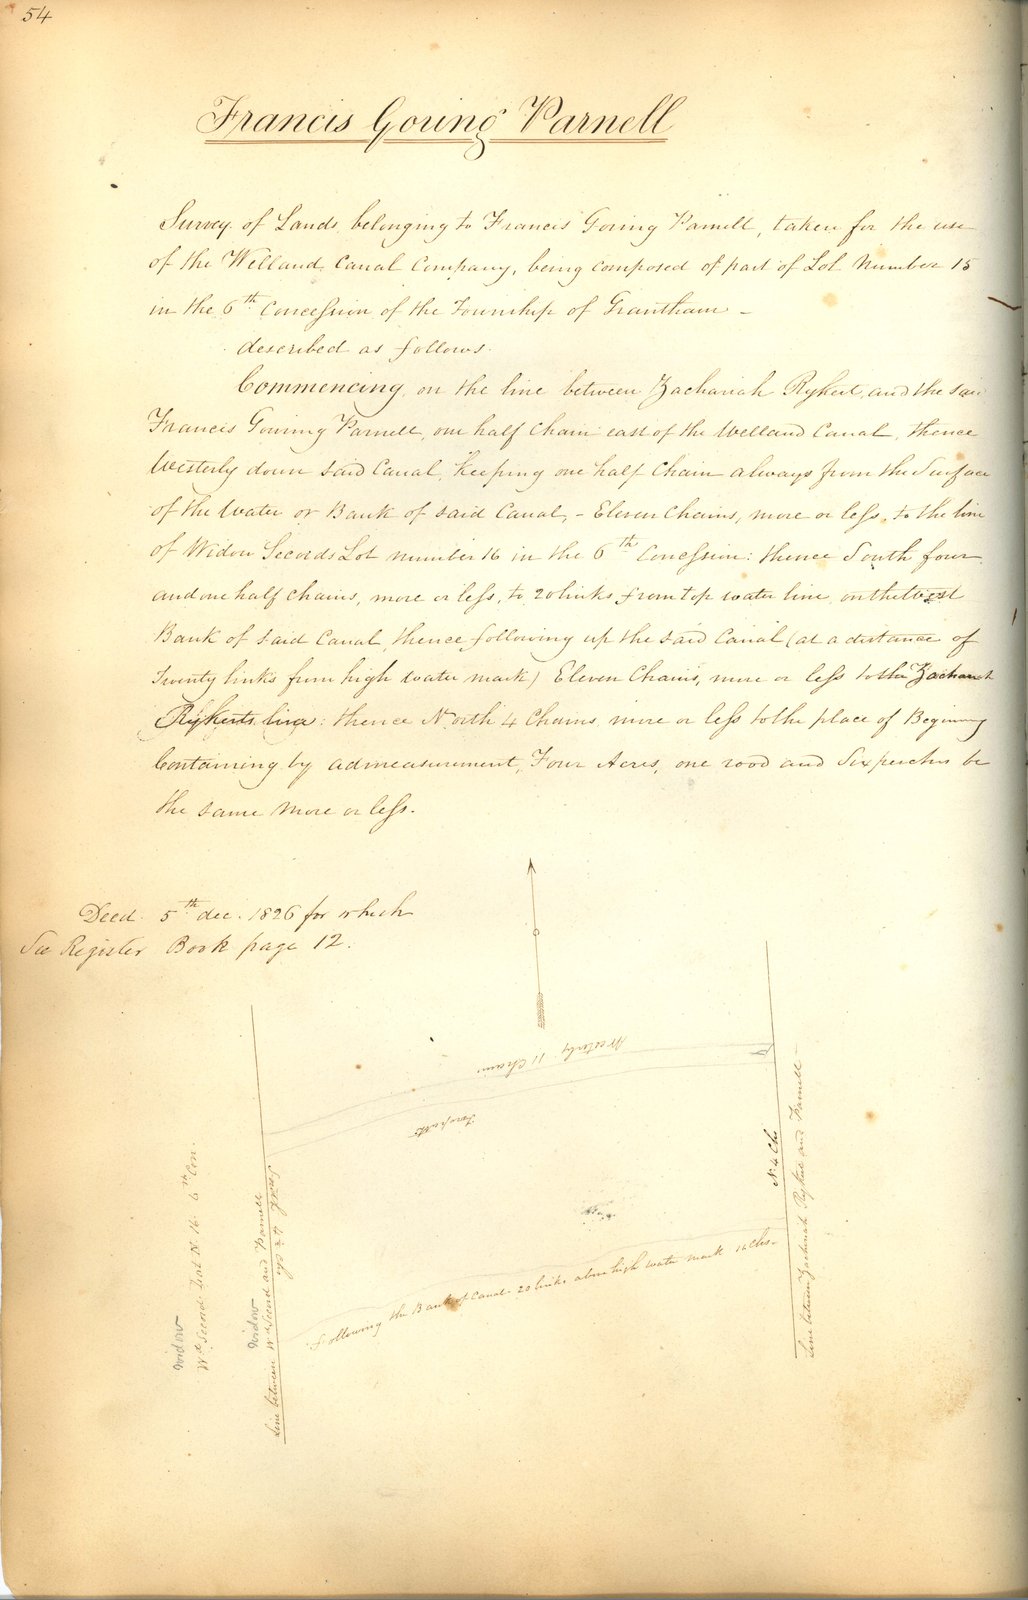 54
Francis Goring Parnell
Survey of Lands belonging to Francis Goring Parnell, taken for the use
of the Welland Canal Company, being composed of part of Lot Number 15
in the 6th Concession of the Township of Grantham -
described as follows.
Commencing on the line between Zachariah Rykert and the said
Francis Goring Parnell, one half Chain east of the Welland Canal, thence
Westerly down said Canal, keeping one half Chain always from the Surface
of the Water or Bank of said Canal, - Eleven Chains, more or less, to the line
of Widow Secords Lot number 16 in the 6th Concession: thence South four
and one half chains, more or less, to 20 links from top water line on the West
Bank of said Canal, thence following up the said Canal (at a distance of
Twenty links from high water mark) Eleven Chains, more or less to the Zachariah
Rykerts line: thence North 4 Chains more or less to the place of Beginning
Containing by admeasurement, Four Acres, one rood and Six perches be
the same more or less.
Deed 5th dec. 1826 for which
See Register Book page 12.
Westerly 11 Chains
Towpath
N. 4 Chs
Line between Zachariah Rykert and Parnell
South 4½ Chs
Widow
Line between Wd Secord and Parnell
Widow
Wd Secord Lot N. 16. 6th Con.
Following the Bank of Canal 20 links above high water mark 11 Chs.